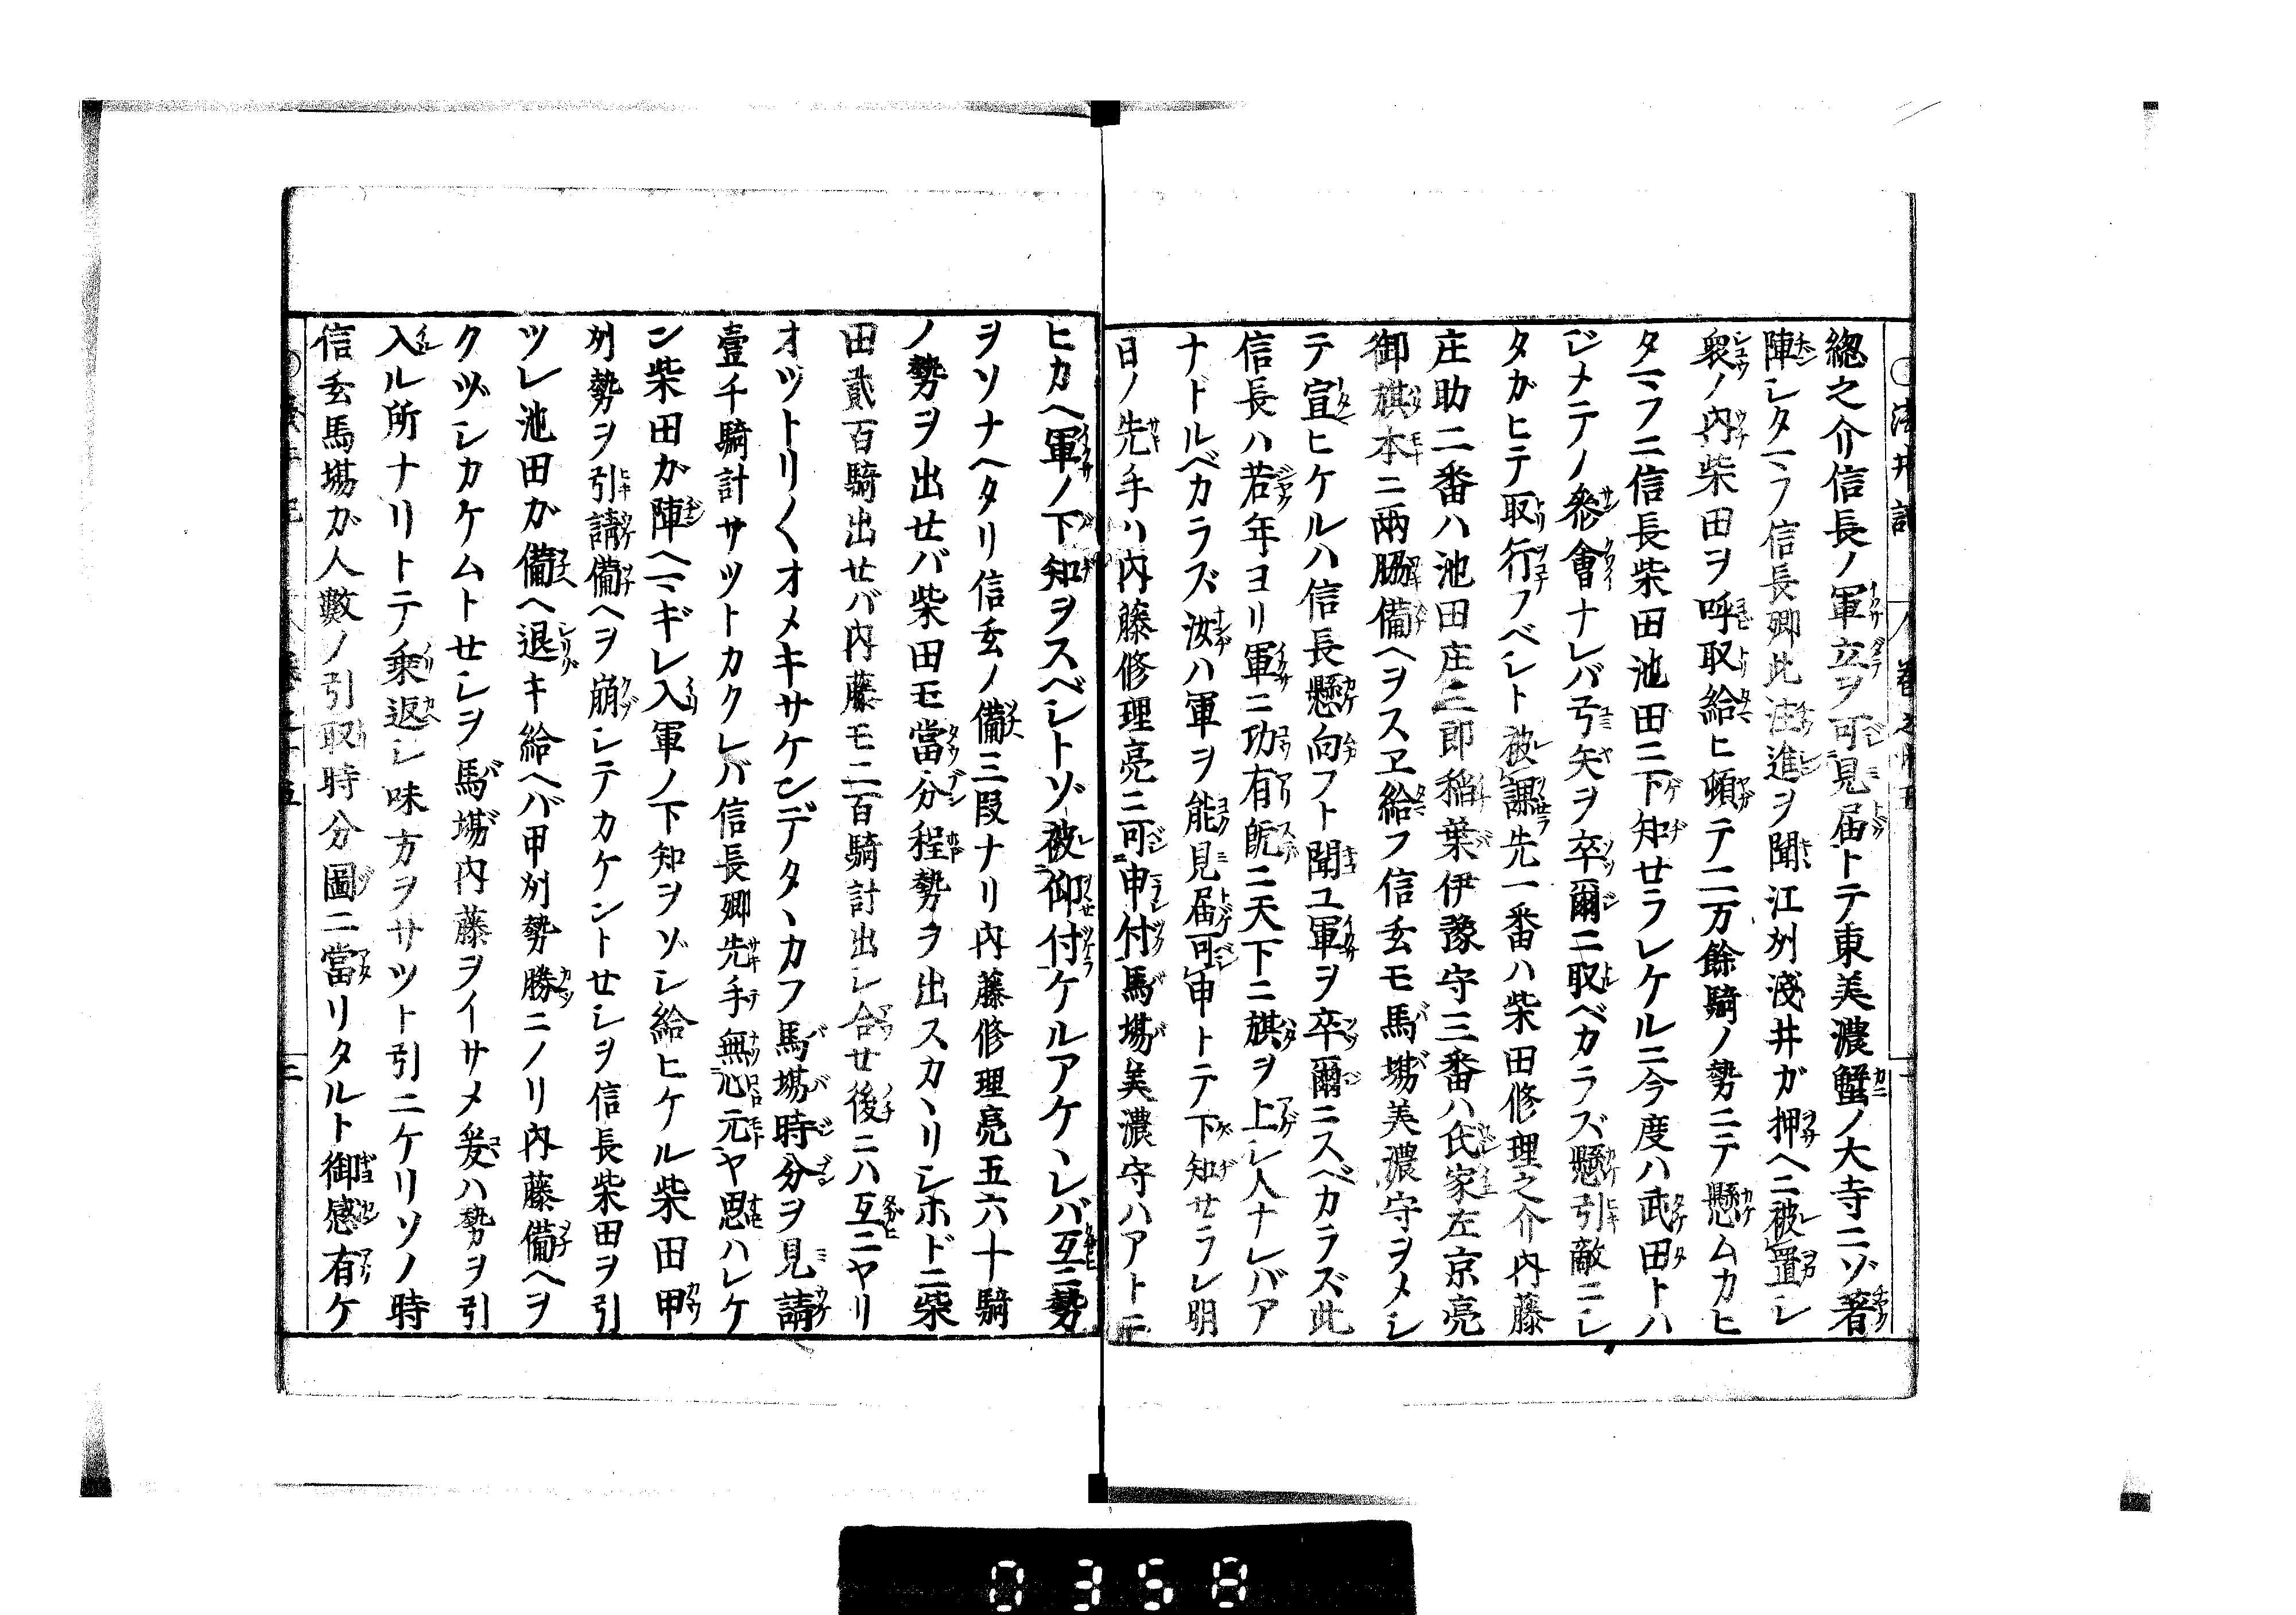 總之介信長ノ軍立ヲ可見届トテ東美濃蟹ノ大寺ニゾ著
陣シタマフ信長卿此注進ヲ聞江刕淺井ガ押ヘニ被置シ
衆ノ内柴田ヲ呼取給ヒ頓テ二万餘騎ノ勢ニテ懸ムカヒ
タマフニ信長柴田池田ニ下知セラレケルニ今度ハ武田トハ
ジメテノ參會ナレバ弓矢ヲ卒爾ニ取ベカラズ懸引敵ニシ
タガヒテ取行フベシト被課先一番ハ柴田修理之介内藤
庄助二番ハ池田庄三郎稲葉伊豫守三番ハ氏家左京亮
御旗本ニ兩脇備ヘヲスヱ給フ信玄モ馬場美濃守ヲメシ
テ宣ヒケルハ信長懸向フト聞ユ軍ヲ卒爾ニスベカラズ此
信長ハ若年ヨリ軍ニ功有既ニ天下ニ旗ヲ上シ人ナレバア
ナドルベカラズ汝ハ軍ヲ能見届可申トテ下知セラレ明
日ノ先手ハ内藤修理亮ニ可申付馬場美濃守ハアトニ
ヒカヘ軍ノ下知ヲスベシトゾ被仰付ケルアケヽレバ互ニ勢
ヲソナヘタリ信玄ノ備三段ナリ内藤修理亮五六十騎
ノ勢ヲ出セバ柴田モ當分程勢ヲ出スカヽリシホドニ柴
田貳百騎出セバ内藤モ二百騎計出シ合セ後ニハ互ニヤリ
オツトリ〱オメキサケンデタヽカフ馬場時分ヲ見請
壹千騎計サツトカクレバ信長卿先手無心元ヤ思ハレケ
ン柴田ガ陣ヘマギレ入軍ノ下知ヲゾシ給ヒケル柴田甲
刕勢ヲ引請備ヘヲ崩シテカケントセシヲ信長柴田ヲ引
ツレ池田ガ備ヘ退キ給ヘバ甲刕勢勝ニノリ内藤備ヘヲ
クヅシカケムトセシヲ馬場内藤ヲイサメ爰ハ勢ヲ引
入ル所ナリトテ乗返シ味方ヲサツト引ニケリソノ時
信玄馬場ガ人數ノ引取時分圖ニ當リタルト御感有ケ
0358